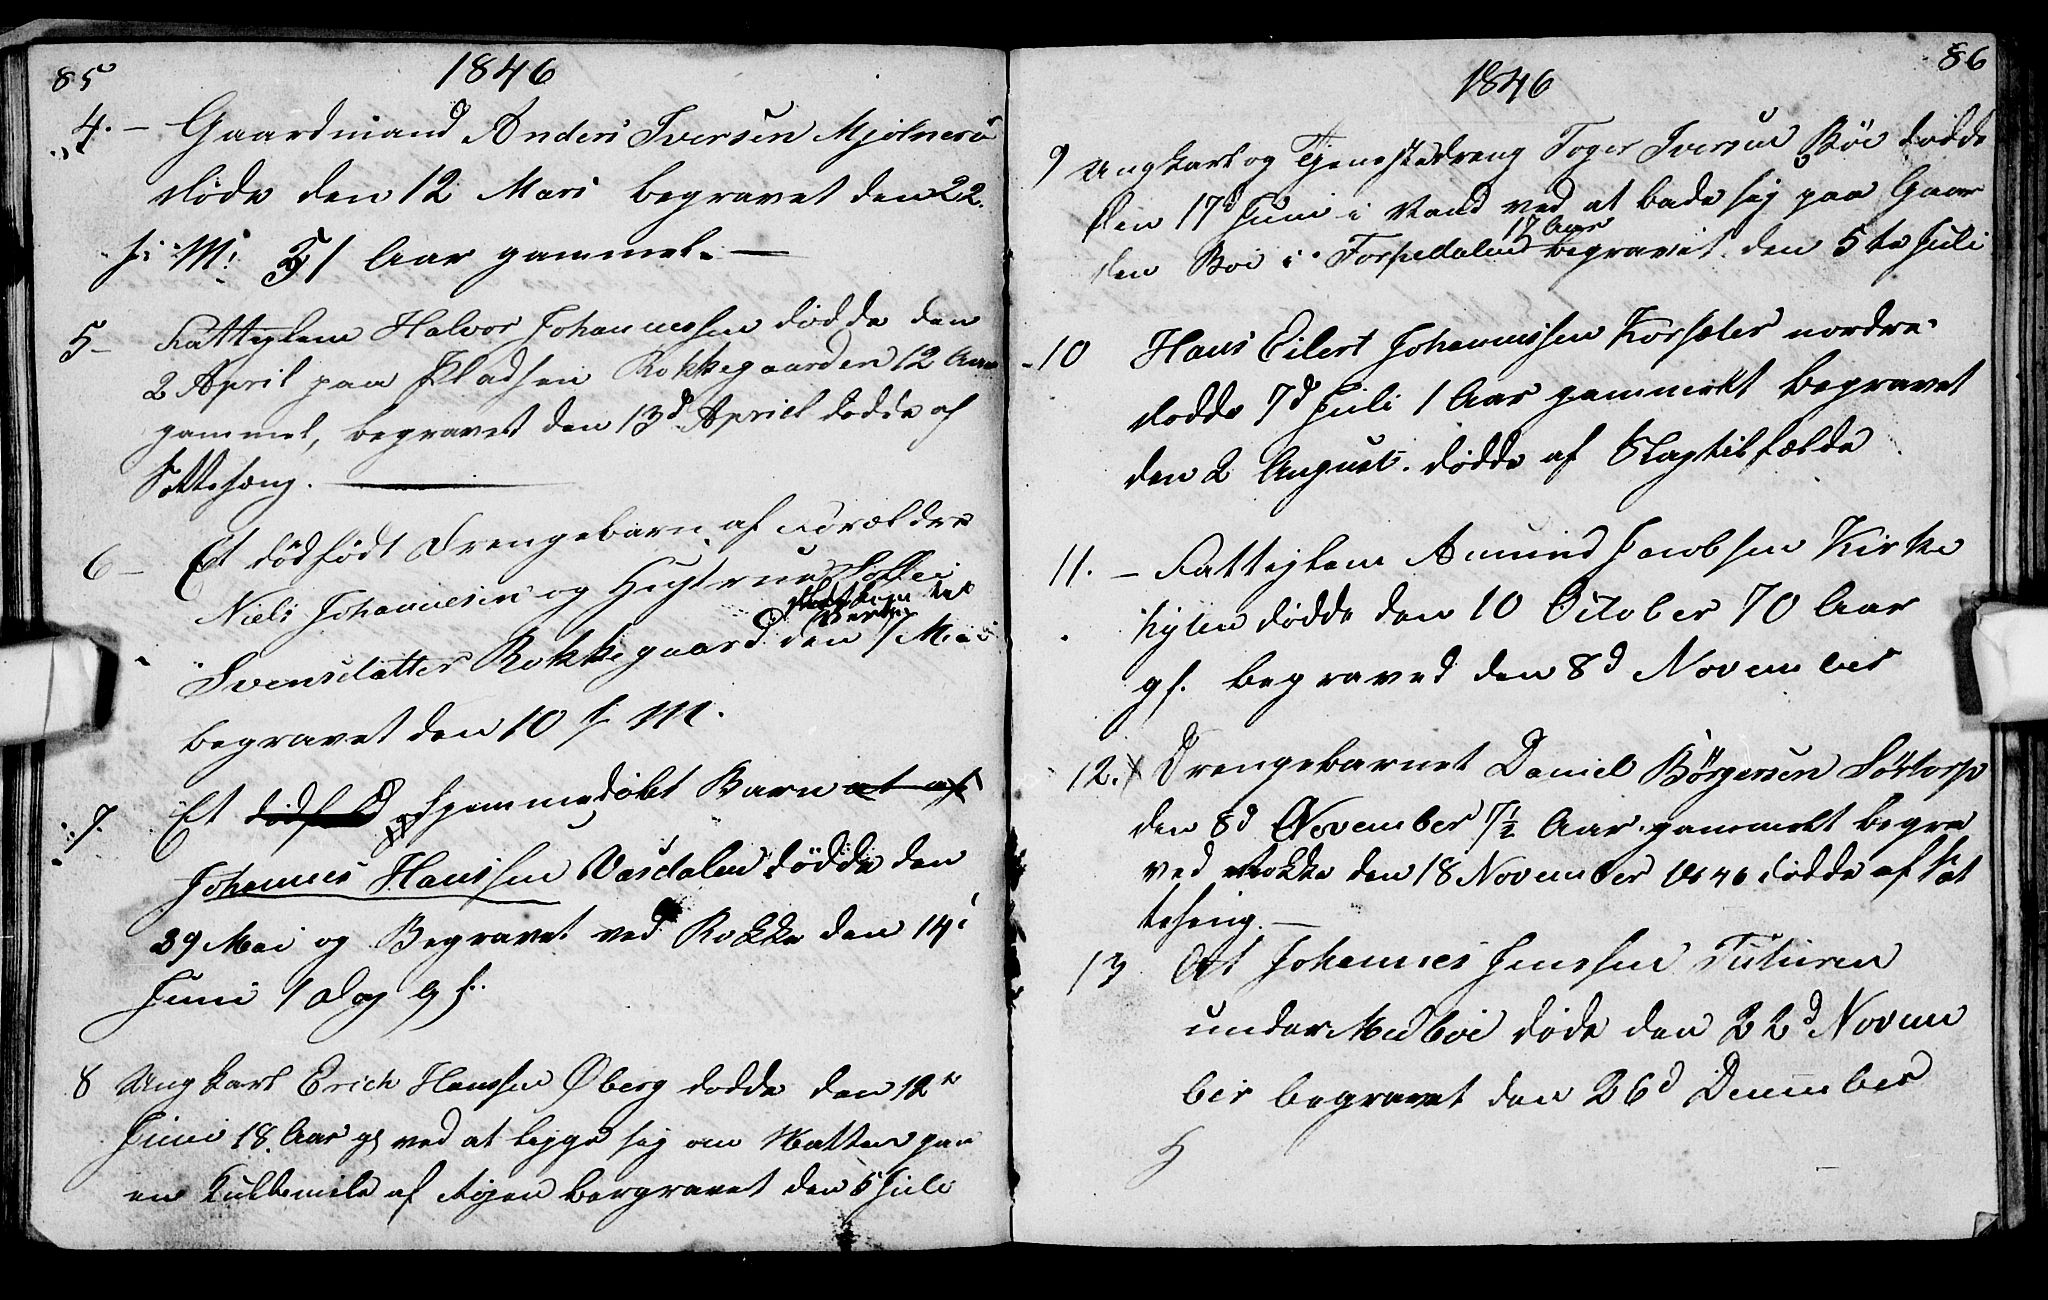 85
1846
4. — Gaardmand Anders Iversen Mjølnerø
døde den 12 Mars begravet den 22.
s: M: 51 Aar gammel. —
5 — Fattiglem Halvor Johannessen dødde den
2 April paa Pladsen Rokkegaarden 12 Aar
gammel, begravet den 13d April dødde af
Sottesæng. —
6 — Et dødfødt Drengebarn af Forældre
Niels Johannesen og
Svensdatter Rokkegaard den 7 Mai
begravet den 10 s. M.
7. Et dødfød hjemmedøbt Barn at af
Johannes Hanssen Vasdalen dødde den
29 Mai og Begravet ved Rokke den 14
Juni 1 Dag gl.
8 Ung Karl Erich Hanssen Øberg dødde den 12te
Juni 18. Aar gl ved at legge sig om Natten paa
en Kullemile af Røgen bergravet den 5 Juli
86
1846
9 Ungkarl og Tjenestedreng Toger Iversen Böe dødde
den 17d Juni i Vand ved at bade sig paa Gaar
17 Aar
den Boe i Torpedalen begravet den 5te Juli
10 Hans Eilert Johannessen Korsæter nordre
dødde 7d Juli 1 Aar gammelt begravet
den 2 August. dødde af Slagtilfælde
11. — Fattiglem Amund Jacobsen Kirke
hylen dødde den 10 October 70 Aar
gl. begraved den 8d November
12. Drengebarnet Daniel Börgersen Sörtorp
den 8d November 7 1/2 Aar gammelt begra
ved Rokke den 18 November 1846 dødde af Sot
teseng. —
13 At Johannes Jenssen
under døde den 22d Novem
ber begravet den 26d December